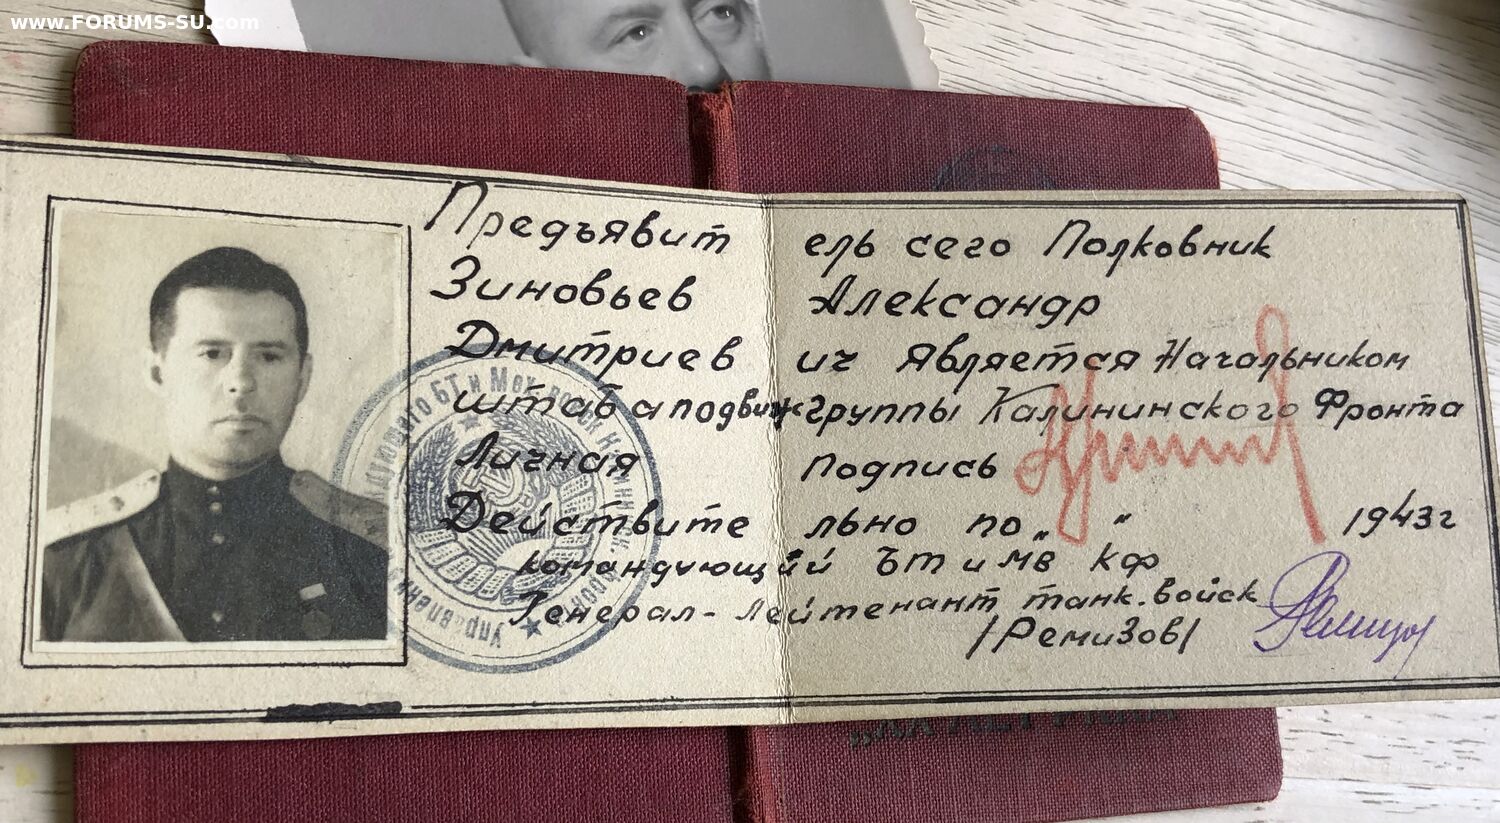 www.FORUMS-SU.com
Предъявитель сего Полковник
Зиновьев Александр
Дмитриевич является Начальником
штаба подвиж группы Калининского Фронта
Личная подпись
Действительно по „ “ 1943г
командующий БТ и МВ КФ
Генерал-Лейтенант танк. войск
/Ремизов/
БТ и Мех. войск